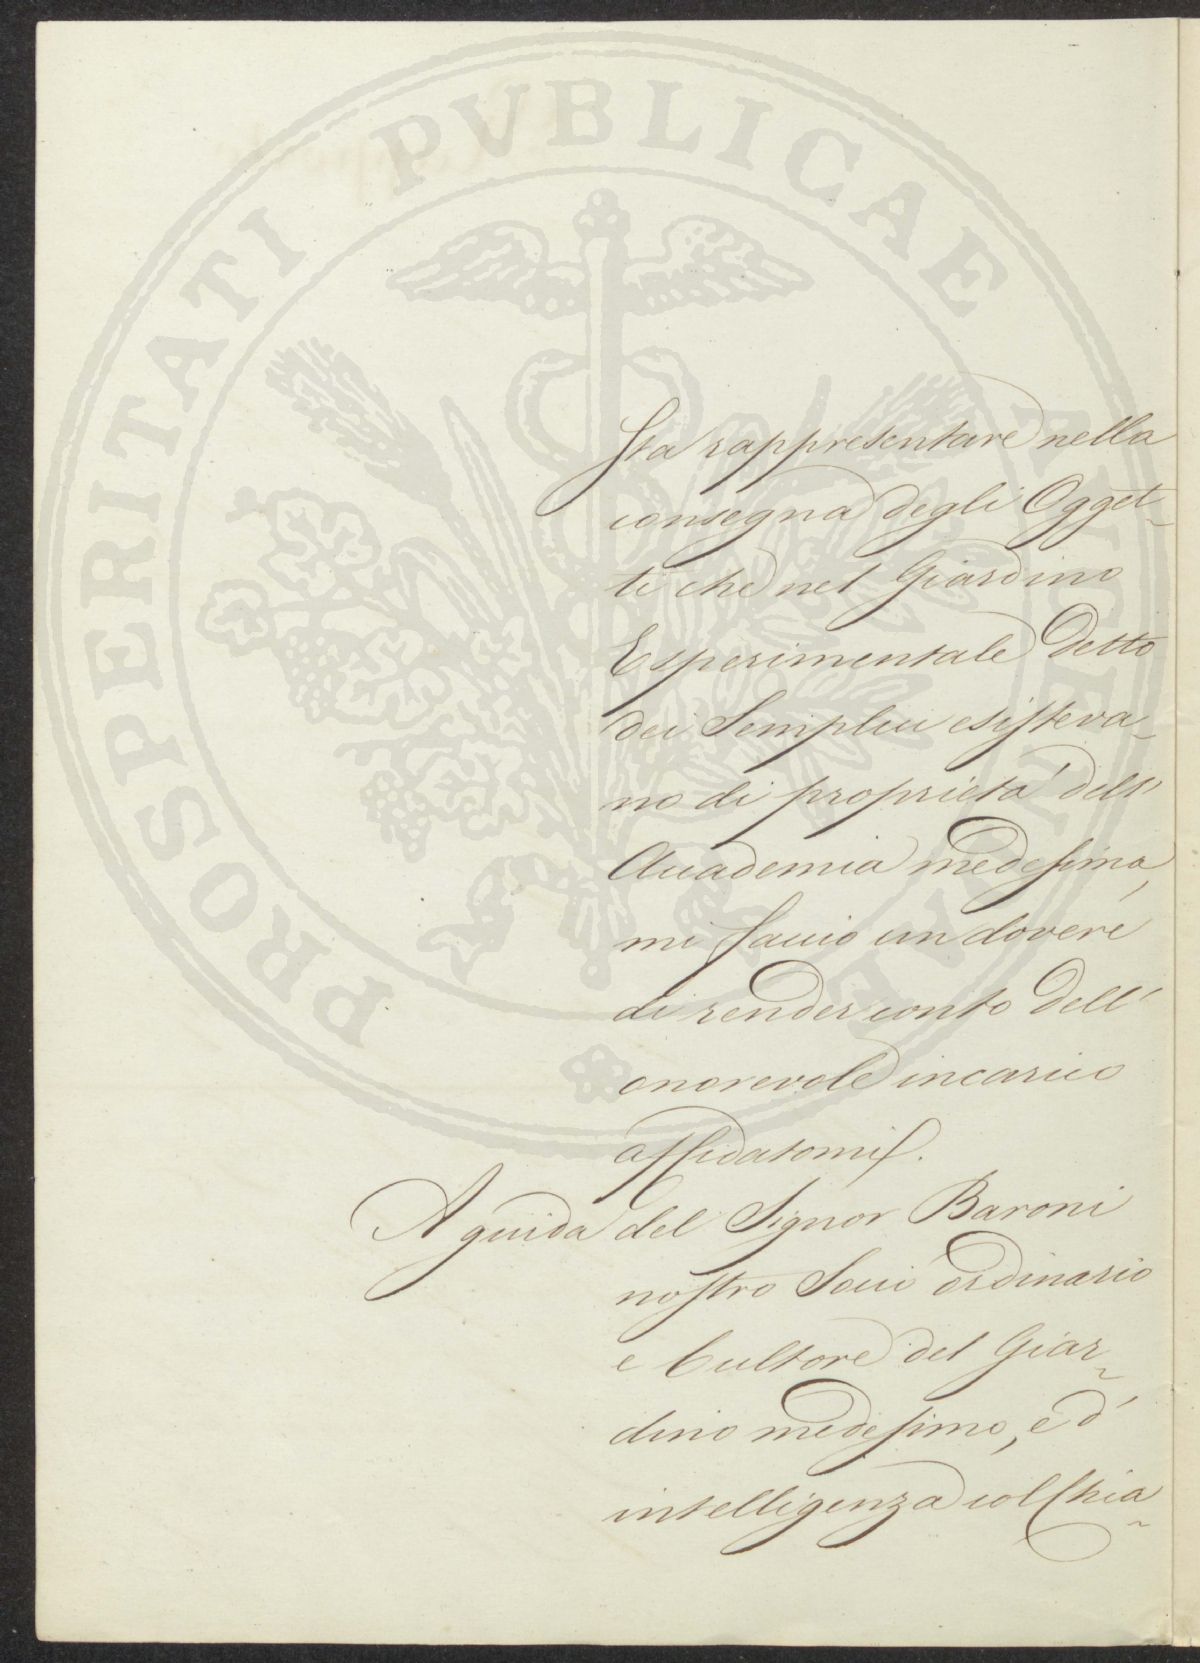 PROSPERITATI PVBLICAE AVGENDAE
sta rappresentare nella
consegna degli Ogget-
ti che nel Giardino
Esperimentale Detto
dei Semplici esisteva-
no di proprietá dell'
Accademia medesima,
mi faccio un dovere
di render conto dell'
onorevole incarico
affidatomi.
A guida del Signor Baroni
nostro Socio ordinario
e Cultore del Giar-
dino medesimo, e d'
intelligenza col Chia-